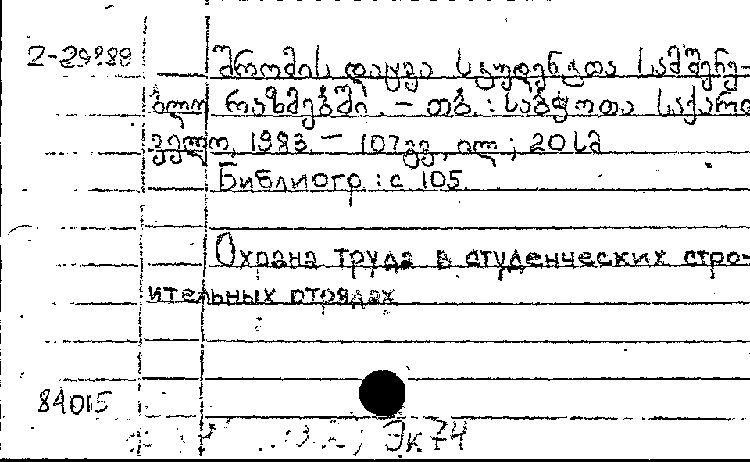 2-29888 შრომის დაცვა სტუდენტთა სამშენე-
ბლო რაზმებში. – თბ.: საბჭოთა საქართ
ველო, 1983. – 107 გვ., ილ.; 20 სმ
Библиогр.: с 105.
Охрана труда в студенческих стро-
ительных отрядах
84015
Эк74